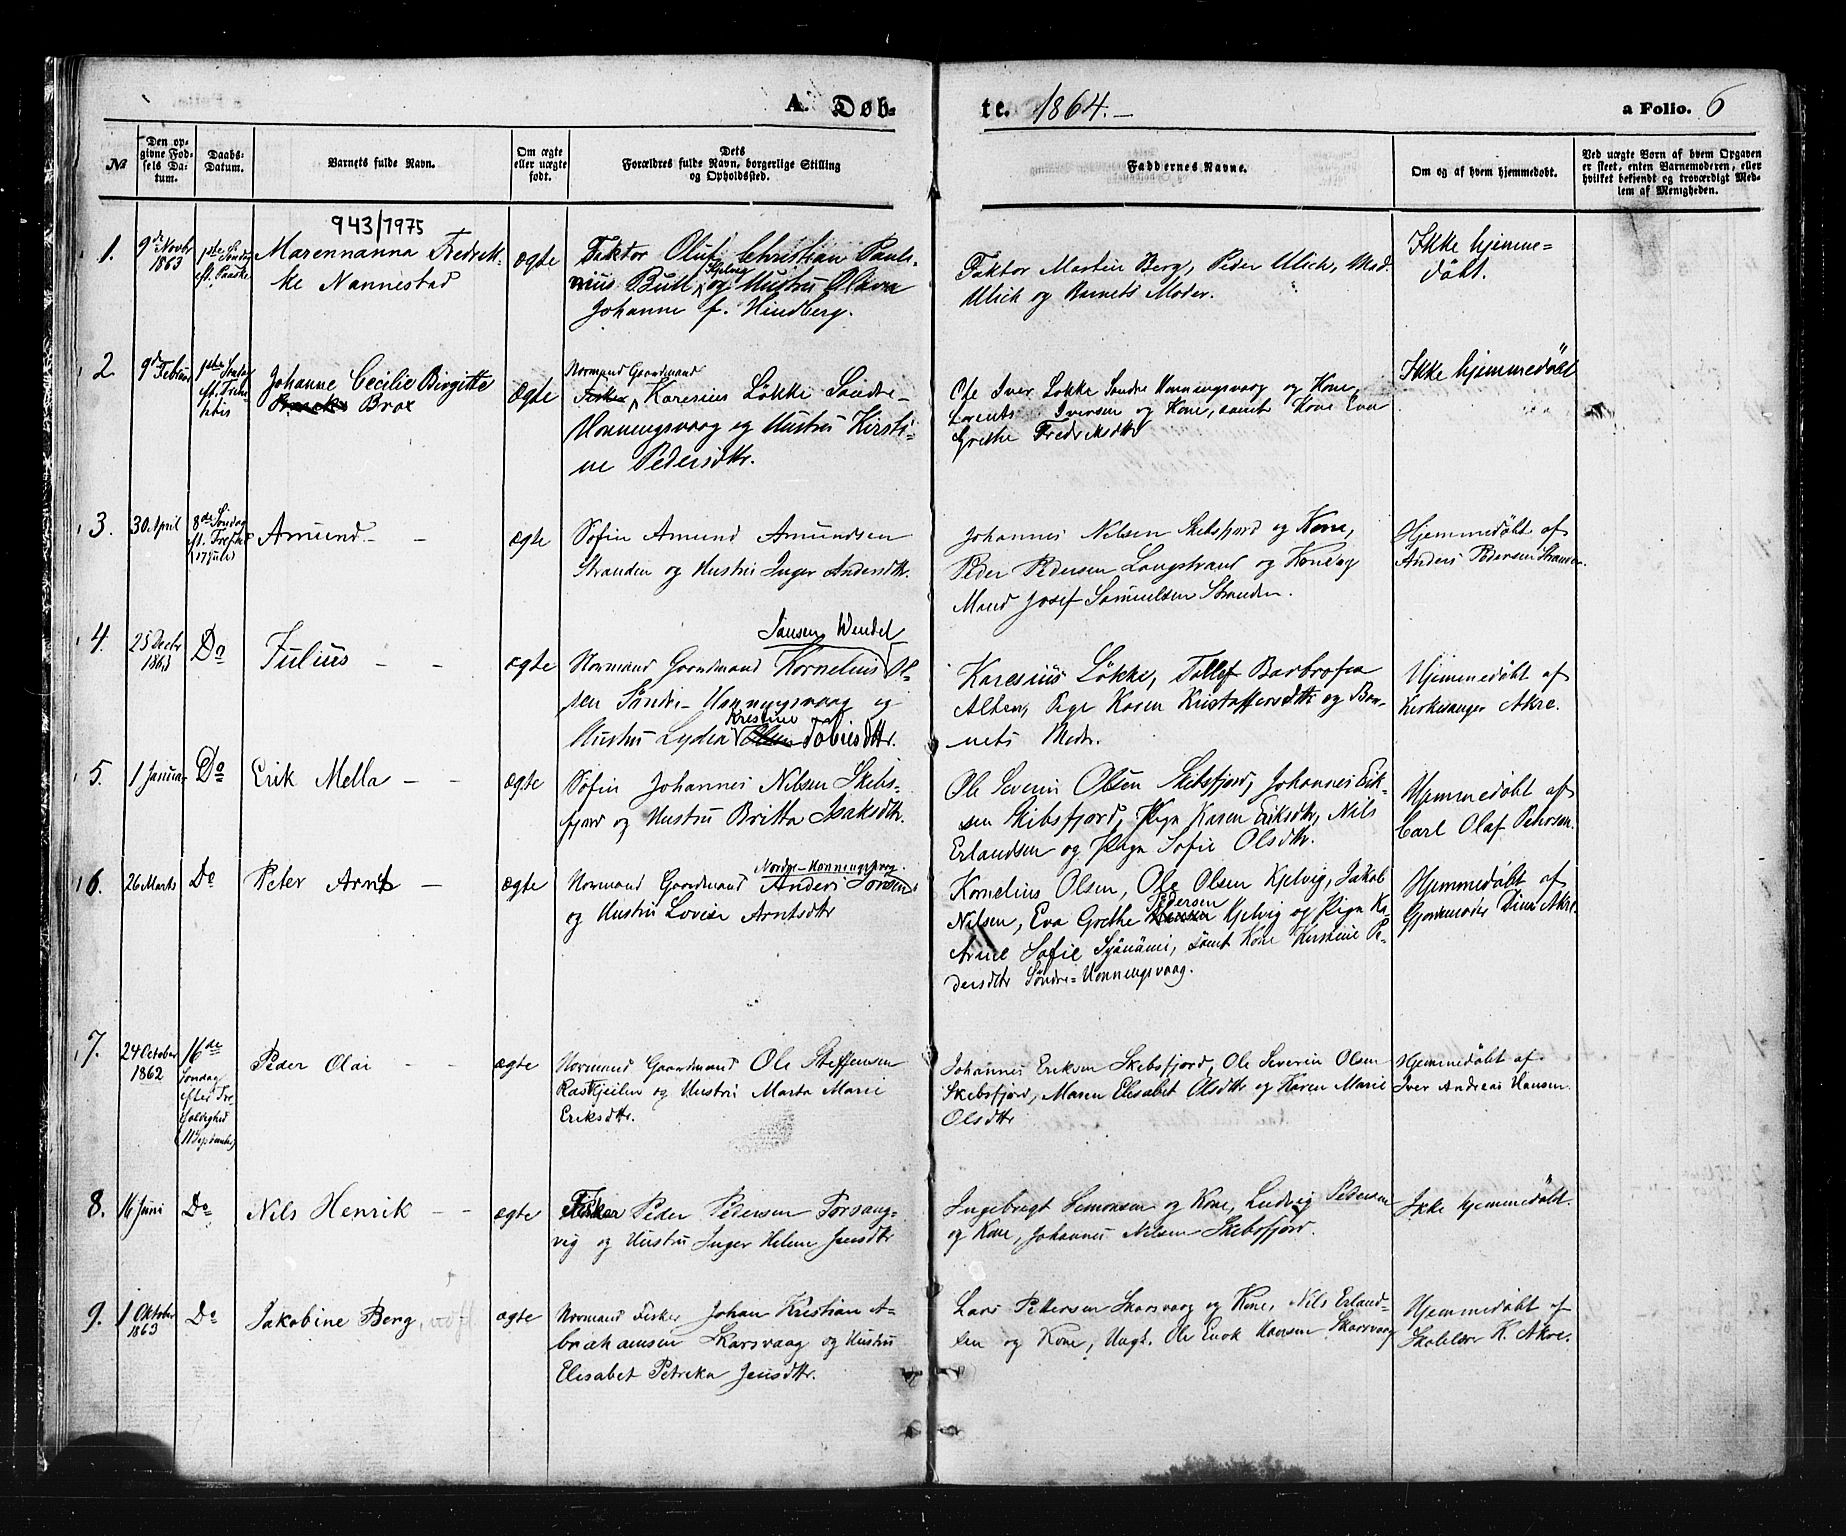 A. Døb-
te. 1864.-
a Folio. 6
№
Den op-
givne Fød-
sels Da-
tum.
Daabs-
Datum.
Barnets fulde Navn.
Om ægte
eller uægte
født.
Dets
Forældres fulde Navn, borgerlige Stilling
og Opholdssted.
Faddernes Navne.
Om og af hvem hjemmedøbt.
Ved uægte Børn af hvem Opgaven
er skeet, enten Barnemoderen, eller
hvilket bekjendt og troværdigt Med-
lem af Menigheden.
1.
9de Novbr
1863
1ste Søndag
eft. Paaske
943/1975
Marennanna Fredrik-
ke Nannestad
ægte
Faktor Oluf Christian Pauls.
nius Bull, Kjelvig og Hustru Olava
Johanne f. Hindberg.
Faktor Martin Berg, Peder Ulich, Mad.
Ulich og Barnets Moder.
Ikke hjemme=
døbt.
2.
9de Februar
1ste Søndag
eft. Trini-
tatis
Johanne Cecilie Birgitte
Brox
ægte
Normand Gaardmand
Fisker Karesius Løkke Søndre-
Honningsvaag og Hustru Kirsti-
ne Pedersdtr.
Ole Iver Løkke Søndre Honningsvaag og Kone,
Lorents Iversen og Kone, samt Kone Eva
Grethe Fredriksdtr
Ikke hjemmedøbt
3.
30 April
8de Søndag
eft. Trefold
(17 Juli)
Amund - -
ægte
Søfin Amund Amundsen
Stranden og Hustru Inger Andersdtr.
Johannes Nilsen Skibsfjord og Kone,
Peder Pedersen Langstrand og Kone og
Mand Josef Samuelsen Stranden.
Hjemmedøbt af
Anders Pedersen Stranden.
4.
25 Decbr
1863
Do
Julius - -
ægte
Jansen Wendel
Normand Gaardmand Kornelius Ol-
sen Søndre-Honningsvaag og
Kristine
Hustru Lydia Olsen Tobiesdtr.
Karesius Løkke, Tollef Barbrofra
Alten, Pige Karen Kristoffersdtr og Bar-
nets Modr.
Hjemmedøbt af
Kirkesanger Akre.
5.
1 Januar
Do
Erik Mella - -
ægte
Søfin Johannes Nilsen Skibs-
fjord og Hustru Britta Isaksdtr.
Ole Severin Olsen Skibsfjord, Johannes Erik-
sen Skibsfjord, Pigen Karen Eriksdtr, Nils
Erlandsen og Pigen Sofie Olsdtr.
Hjemmedøbt af
Carl Olaf Petersen.
6.
26 Marts
Do
Peter Arnt -
ægte
Nordre-Honningsvaag.
Normand Gaardmand Anders Jonsen
og Hustru Lovise Arntsdtr
Kornelius Olsen, Ole Olsen Kjelvig, Jakob
Pedersen
Nilsen, Eva Grethe Hansen Kjelvig og Pigen Ka-
Sofie, samt Kone Kirstine Pe-
dersdtr Søndre-Honningsvaag.
Hjemmedøbt af
Gjordemoder Dina Akre.
7.
24 October
1862
16de
Søndag
efter Tre-
foldighed
(11 September)
Peder Olai
ægte
Normand Gaardmand Ole Steffensen
Rastkjeilen og Hustru Marta Marie
Eriksdtr.
Johannes Eriksen Skibsfjord, Ole Severin Olsen
Skibsfjord, Maren Elisabet Olsdtr og Karen Marie
Olsdtr
Hjemmedøbt af
Iver Andreas Hansen.
8.
16 Juni
Do
Nils Henrik - -
ægte
Fisker Peder Pedersen Porsang-
vig og Hustru Inger Helene Jensdtr
Ingebrigt Simonsen og Kone, Ludvig Pedersen
og Kone, Johannes Nilsen Skibsfjord.
Ikke hjemmedøbt.
9.
1 Oktober
1863
Do
Jakobine Berg,
ægte
Normand Fisker Johan Kristian A-
brahamsen Skarsvaag og Hustru
Elisabet Petrika Jensdtr.
Lars Pettersen Skarsvaag og Kone, Nils Erland-
sen og Kone, Ungk. Ole Enok Hansen Skarsvaag
Hjemmedøbt af
Skolelærer K. Akre.